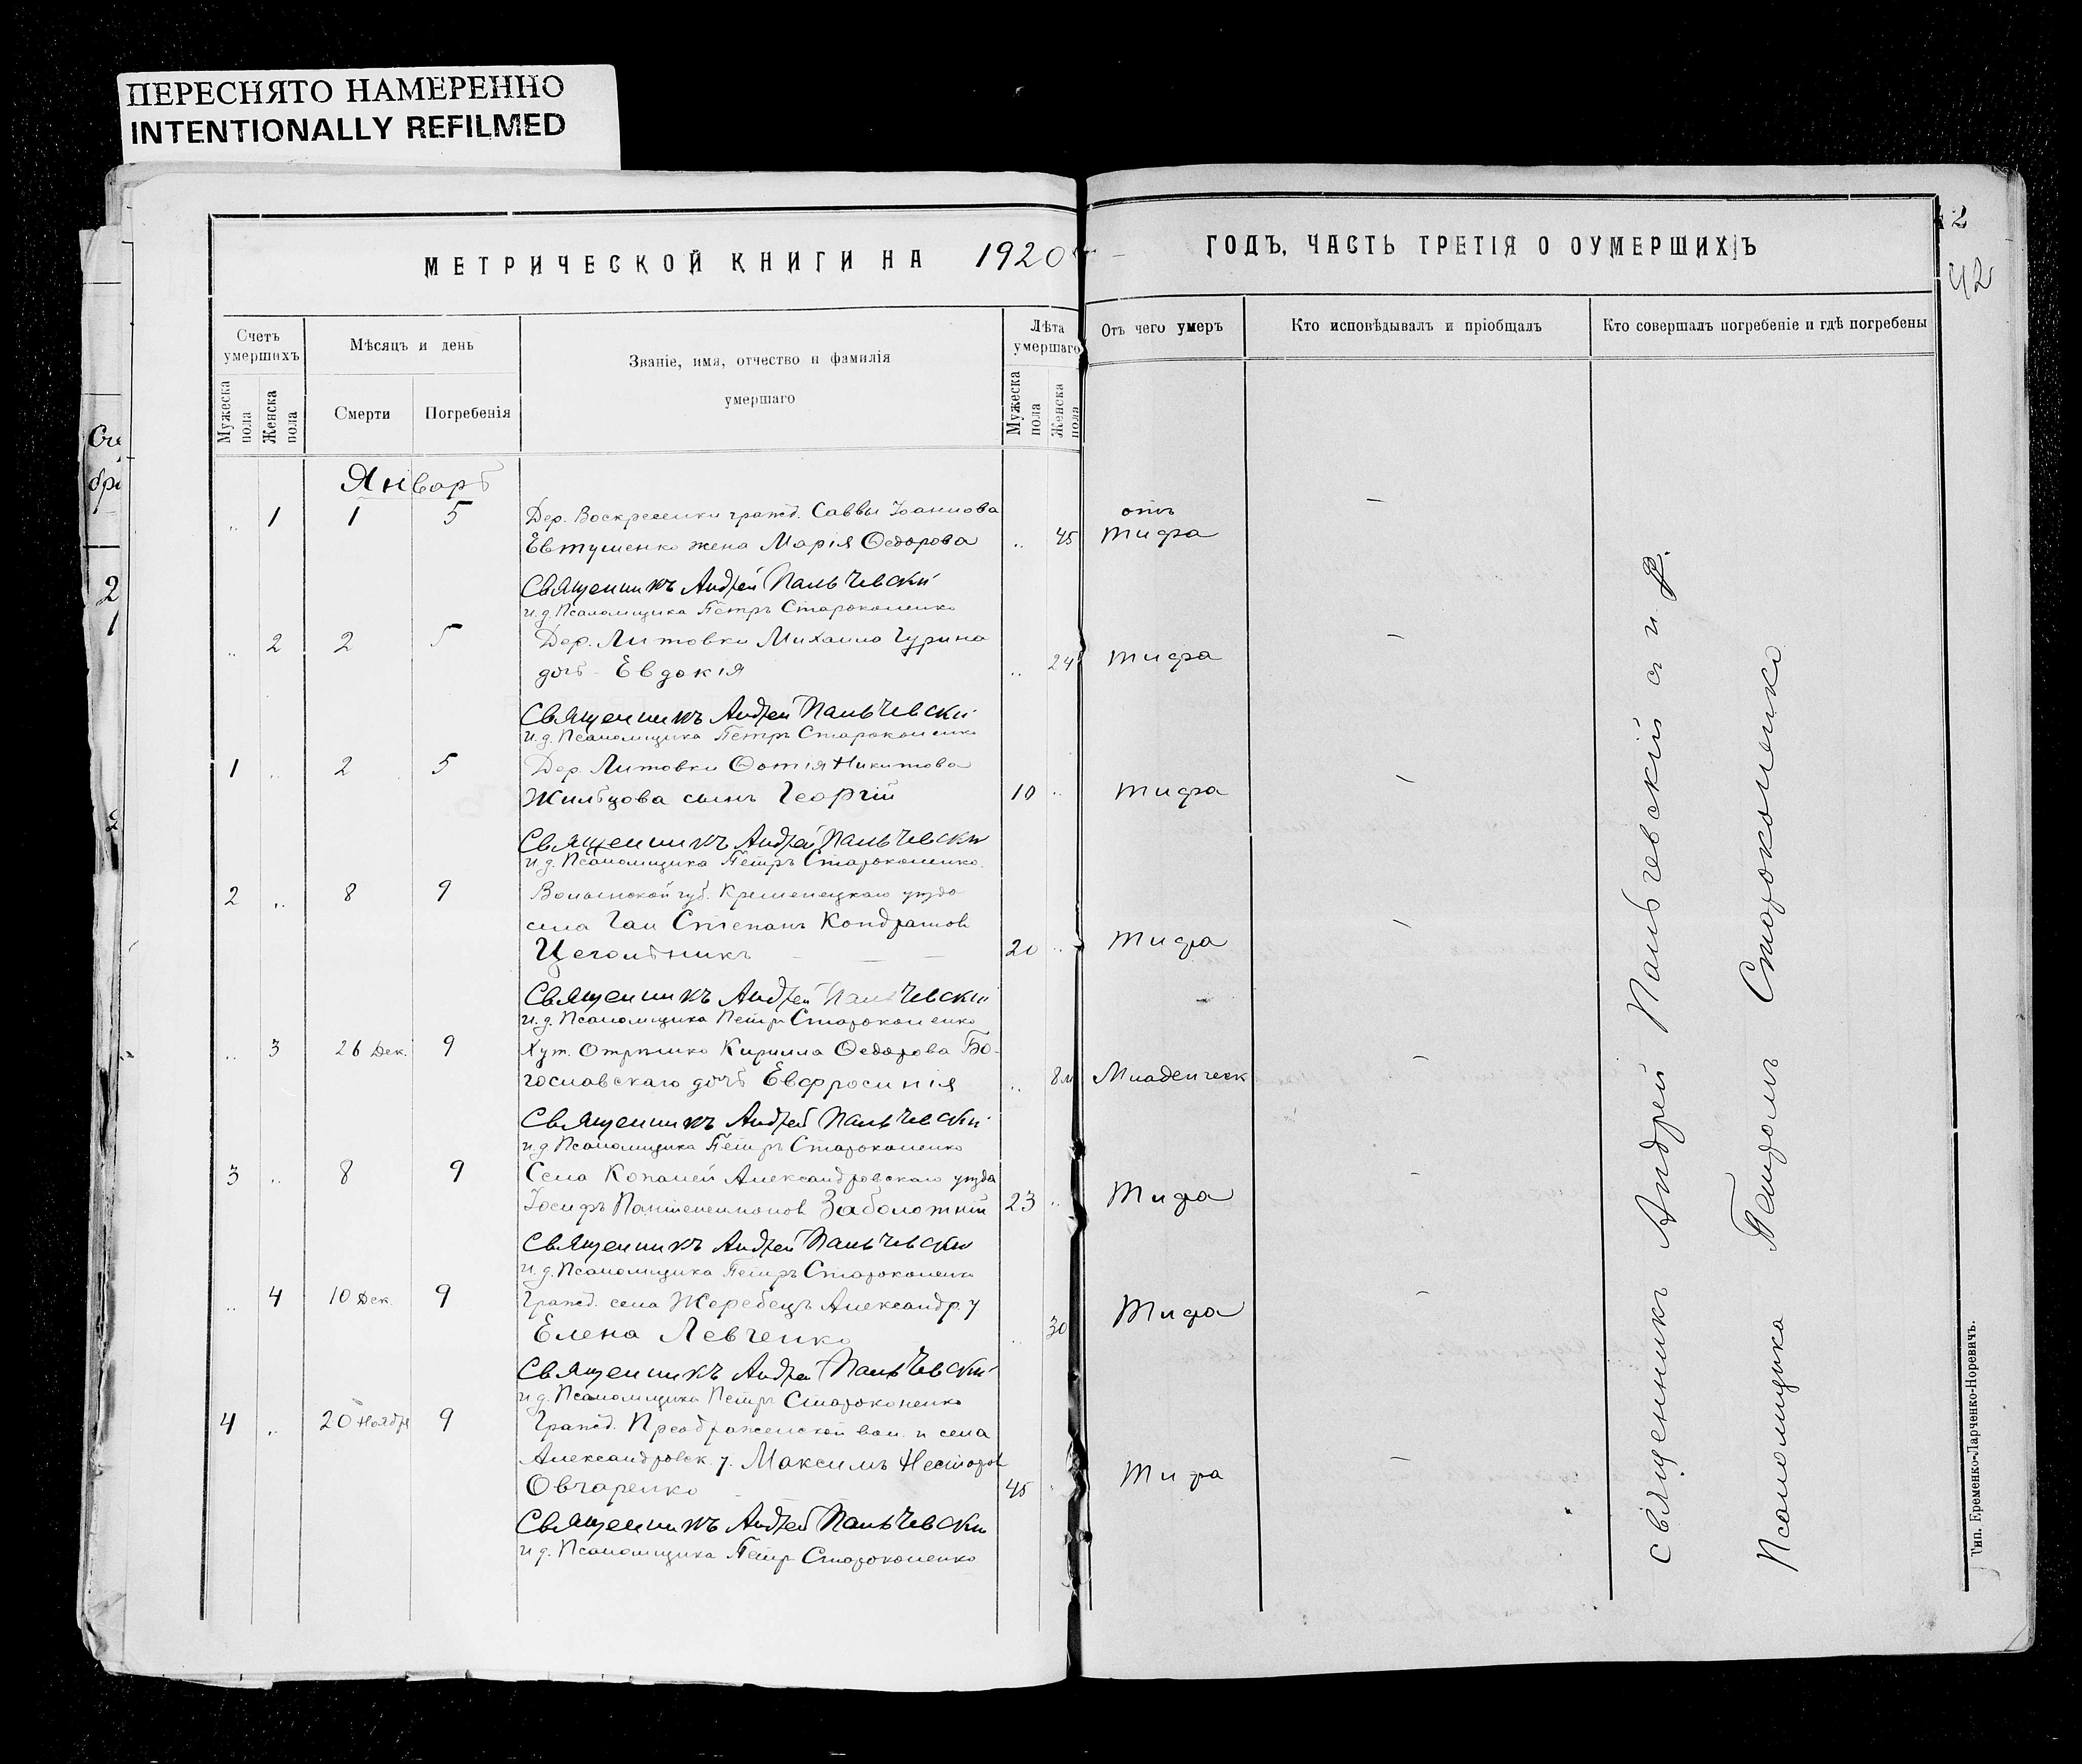 ПЕРЕСНЯТО НАМЕРЕННО
INTENTIONALLY REFILMED
МЕТРИЧЕСКОЙ КНИГИ НА 1920
ГОДЪ, ЧАСТЬ ТРЕТІЯ О ОУМЕРШИХЪ
42
42
Счетъ умершихъ
Мужеска пола
Женска пола
Мѣсяцъ и день
Смерти
Погребенія
Званіе, имя, отчество и фамилія
умершаго
Лѣта умершаго
Мужеска пола
Женска пола
Отъ чего умеръ
Кто исповѣдывалъ и пріобщалъ
Кто совершалъ погребеніе и гдѣ погребены
Январь
„ 1 1 5 Дер. Воскресенки гражд. Саввы Іоаннова
Евтушенко жена Марія Ѳедорова „ 45 отъ тифа —
Священникъ Андрей Пальчевскій
и.д. Псаломщика Петръ Староконенко
„ 2 2 5 Дер. Литовки Михаила Чурина
дочь - Евдокія „ 24 тифа —
Священникъ Андрей Пальчевскій
и.д. Псаломщика Петръ Староконенко
1 „ 2 5 Дер. Литовки Ѳотія Никитова
Жильцова сынъ Георгій 10 „ тифа —
Священникъ Андрей Пальчевскій
и.д. Псаломщика Петръ Староконенко
2 „ 8 9 Волынской губ. Кременецкаго уѣзда
села Гаи Степанъ Кондратов
Цегольникъ — — — 20 „ тифа —
Священникъ Андрей Пальчевскій
и.д. Псаломщика Петръ Староконенко
„ 3 26 Дек. 9 Хут. Отрѣшко Кирилла Ѳедорова Бо-
гославскаго дочь Евфросинія „ 8м Младенческ —
Священникъ Андрей Пальчевскій
и.д. Псаломщика Петръ Староконенко
3 „ 8 9 Села Копаней Александровскаго уѣзда
Іосифъ Пантелеимонов Заболотній 23 „ Тифа —
Священникъ Андрей Пальчевскій
и.д. Псаломщика Петръ Староконенко
„ 4 10 Дек. 9 Гражд. села Жеребецъ Александр. у
Елена Левченко „ 30 Тифа —
Священникъ Андрей Пальчевскій
и.д. Псаломщика Петръ Староконенко
4 „ 20 Ноября 9 Гражд. Преображенской вол. и села
Александровск. у. Максимъ Несторов
Овчаренко 45 „ Тифа —
Священникъ Андрей Пальчевскій
и.д. Псаломщика Петръ Староконенко
Священникъ Андрей Пальчевскій съ и. д.
Псаломщика Петромъ Староконенко
Тип. Еременко-Ларченко-Норевичъ.